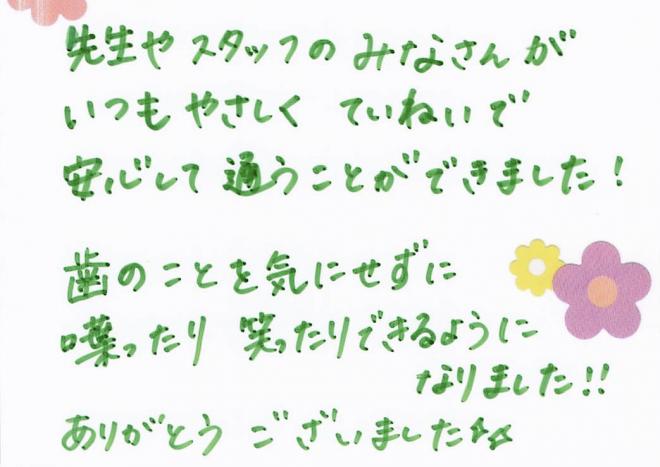 先生や スタッフの みなさんが
いつも やさしく ていねいで
安心して 通うことが できました!
歯のことを気にせずに
喋ったり 笑ったりできるように
なりました!!
ありがとう ございました☆☆